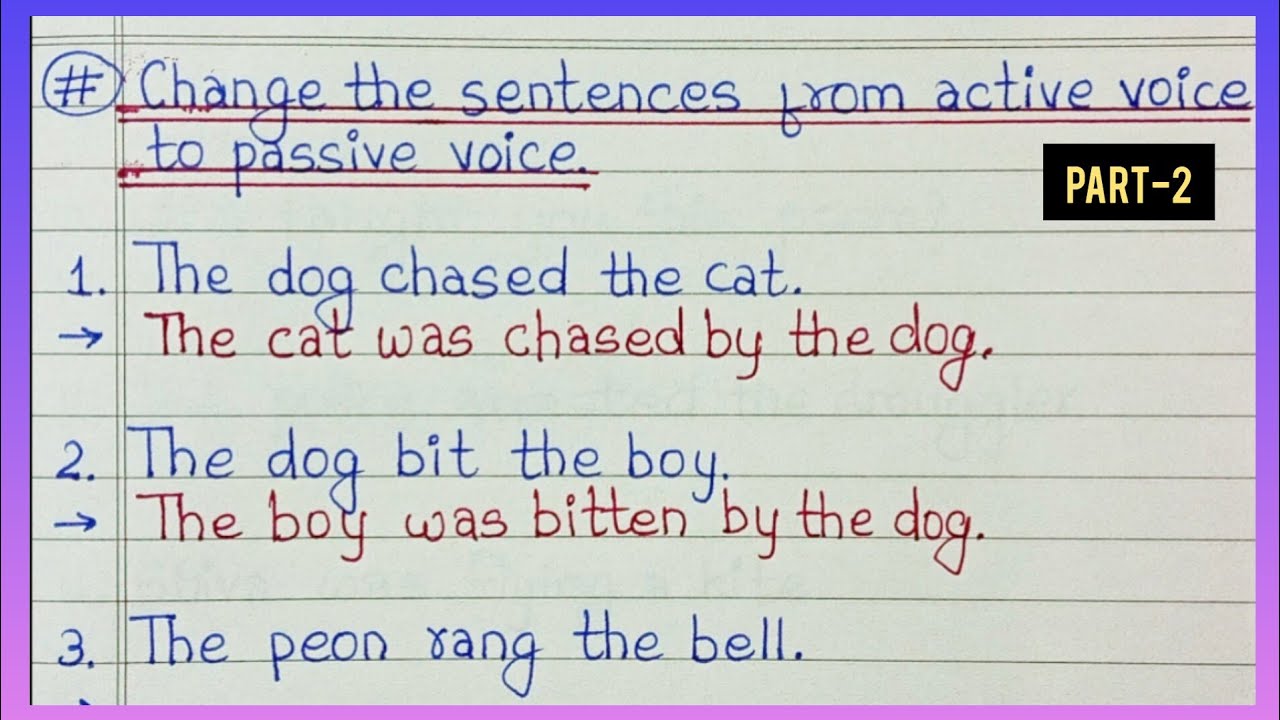 # Change the sentences from active voice
to passive voice.
PART-2
1. The dog chased the cat.
→ The cat was chased by the dog.
2. The dog bit the boy.
→ The boy was bitten by the dog.
3. The peon rang the bell.